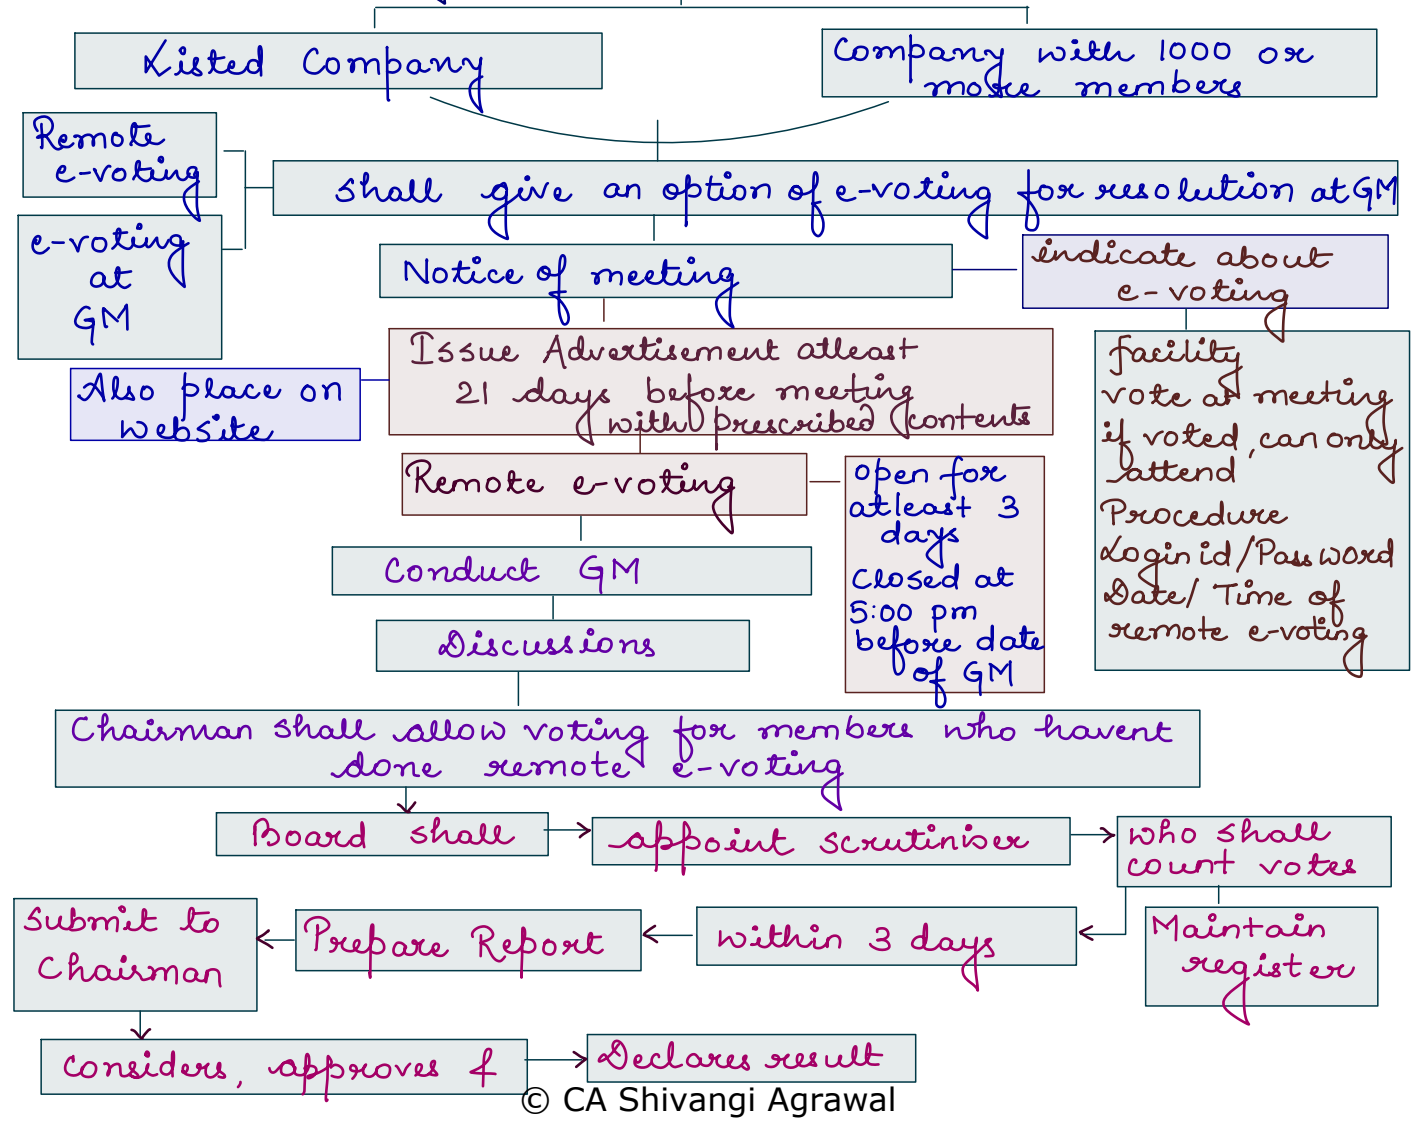 Listed Company
Company with 1000 or
more members
Remote
e-voting
shall give an option of e-voting for resolution at GM
e-voting
at
GM
Notice of meeting
indicate about
e-voting
Issue Advertisement atleast
21 days before meeting
with prescribed contents
Also place on
website
facility
vote at meeting
if voted, can only
attend
Procedure
Login id/Password
Date/ Time of
remote e-voting
Remote e-voting
open for
atleast 3
days
Closed at
5:00 pm
before date
of GM
Conduct GM
Discussions
Chairman shall allow voting for members who havent
done remote e-voting
Board shall
appoint scrutiniser
who shall
count votes
Maintain
register
within 3 days
Prepare Report
Submit to
Chairman
considers, approves &
Declares result
© CA Shivangi Agrawal